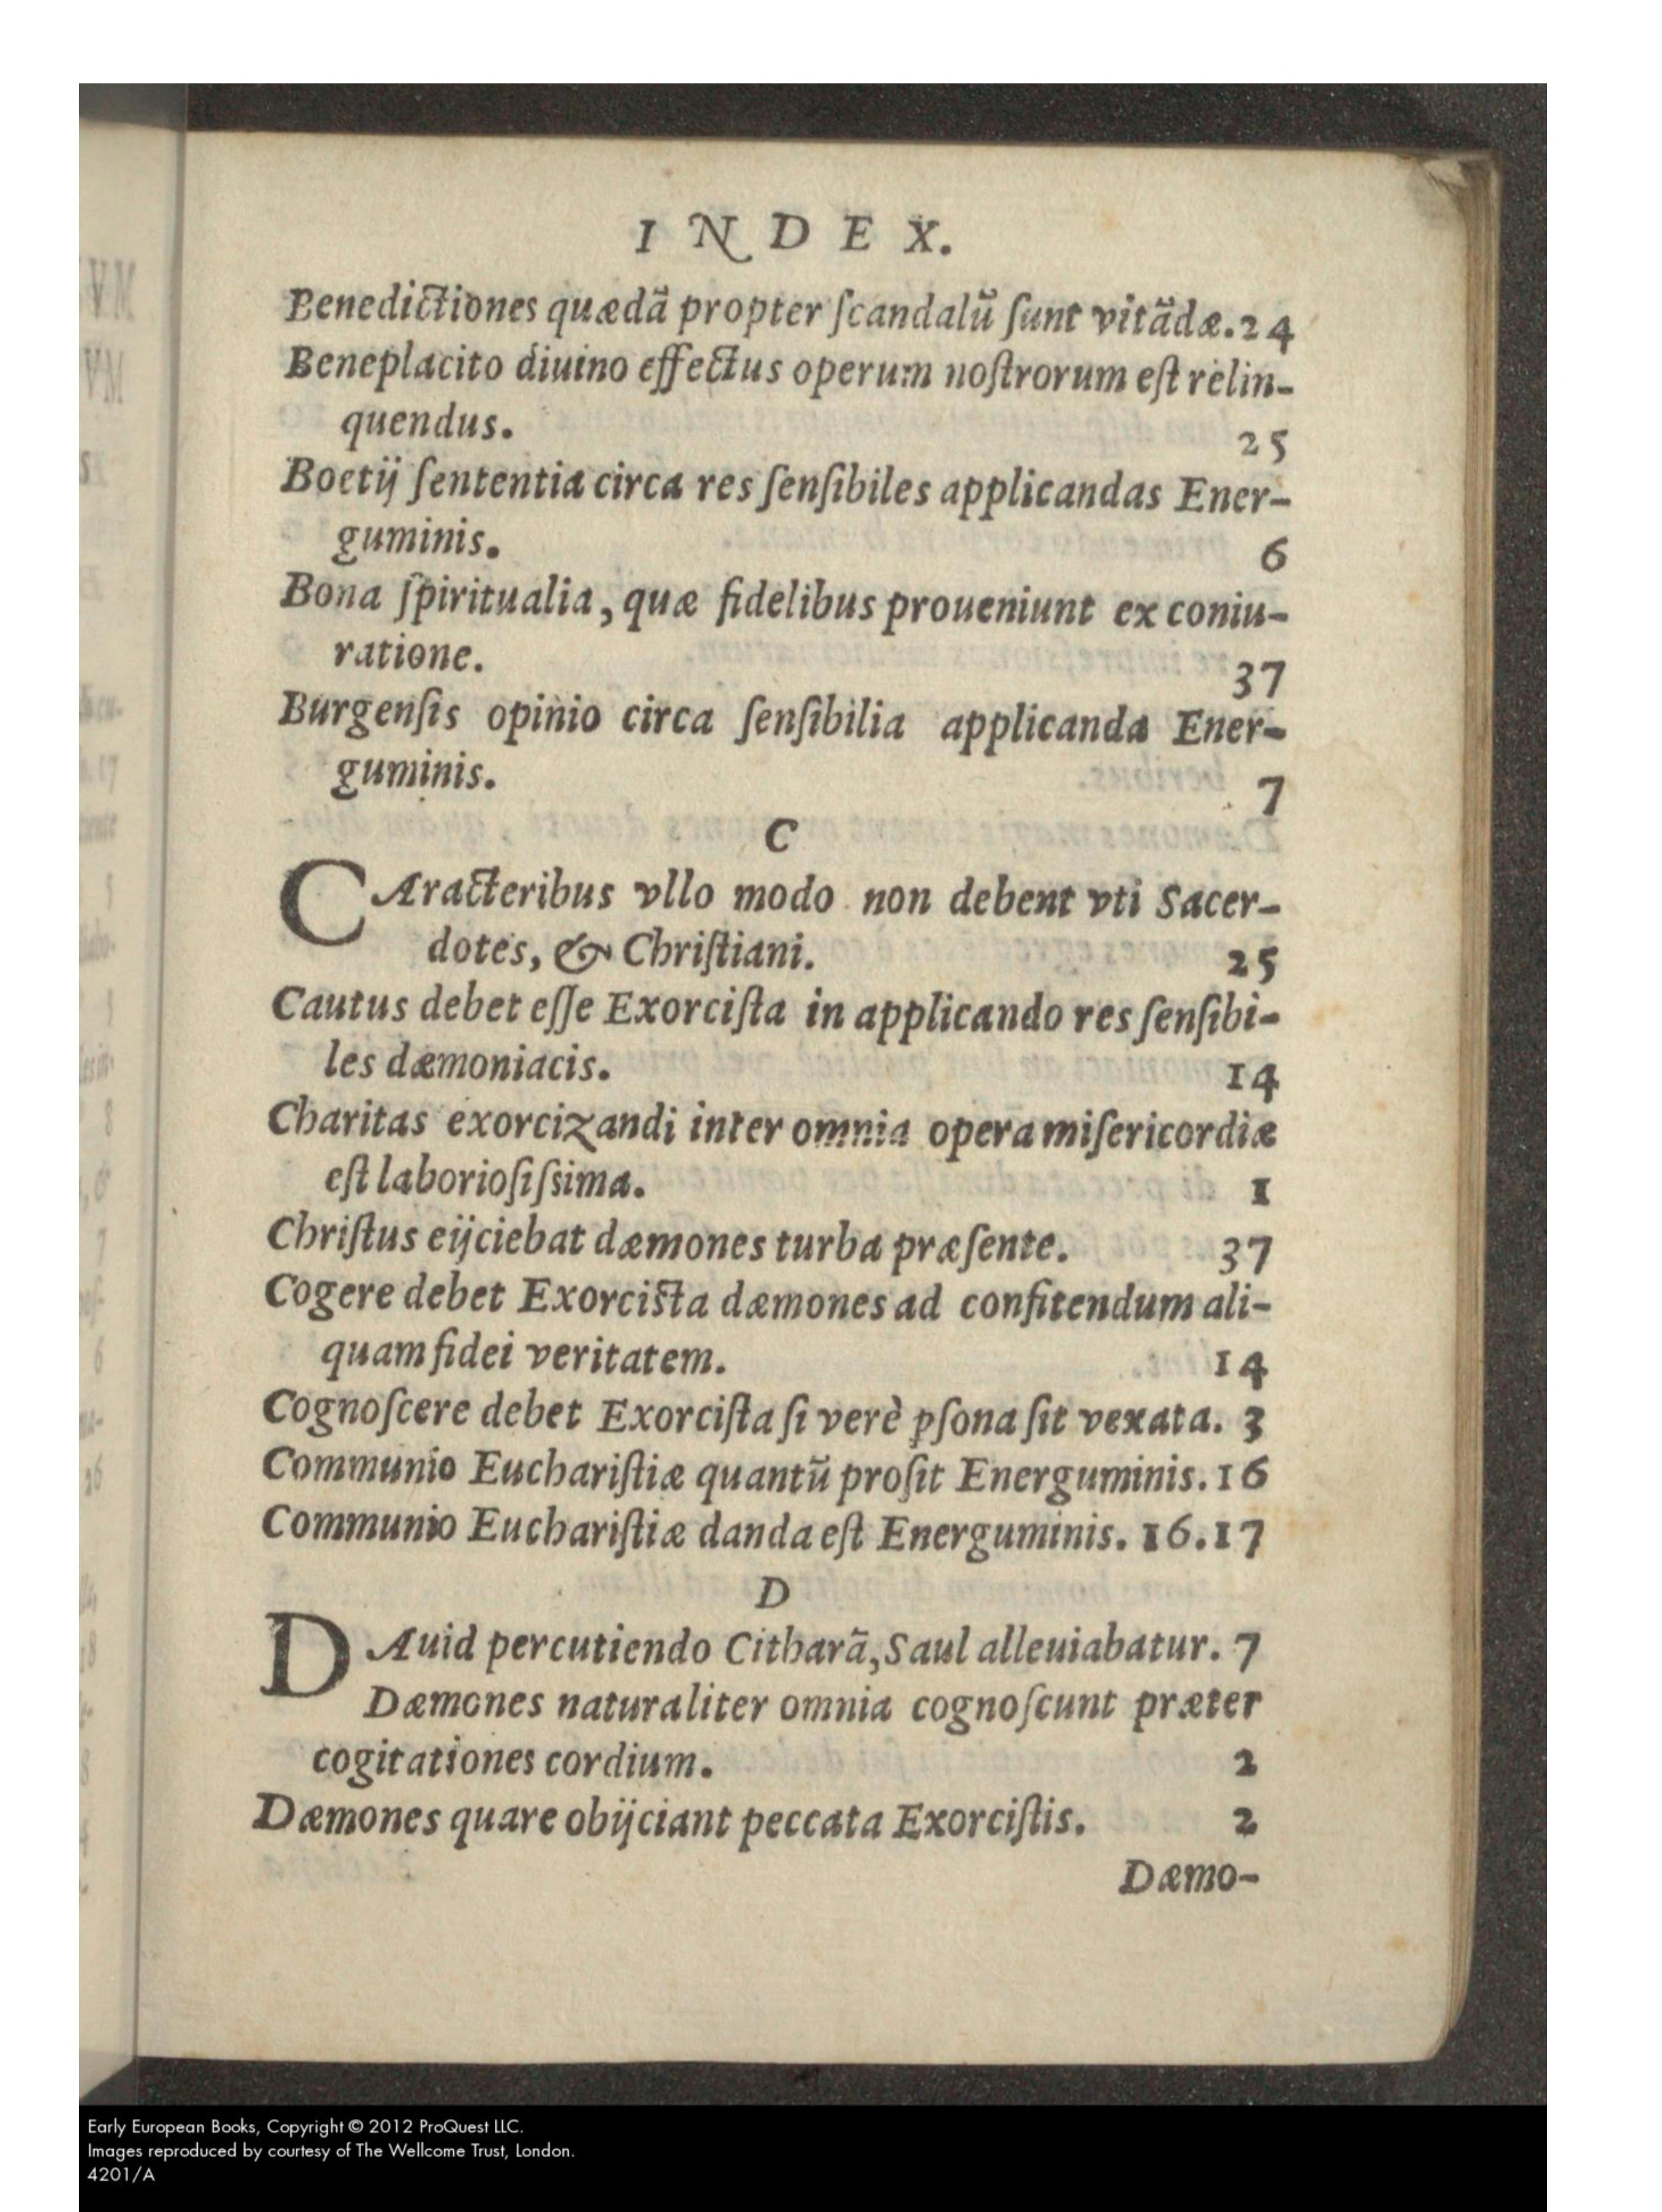 INDEX.
Benedictiones quædã propter ſcandalũ ſunt vitãdæ.24
Beneplacito diuino effectus operum noſtrorum eſt relin-
quendus. 25
Boetij ſententia circa res ſenſibiles applicandas Ener-
guminis. 6
Bona ſpiritualia, quæ fidelibus proueniunt ex coniu-
ratione. 37
Burgenſis opinio circa ſenſibilia applicanda Ener-
guminis. 7
C
CAracteribus vllo modo non debent vti Sacer-
dotes, & Chriſtiani. 25
Cautus debet eſſe Exorciſta in applicando res ſenſibi-
les dæmoniacis. 14
Charitas exorcizandi inter omnia opera miſericordiæ
eſt laborioſiſsima. 1
Chriſtus eijciebat dæmones turba præſente. 37
Cogere debet Exorciſta dæmones ad confitendum ali-
quam fidei veritatem. 14
Cognoſcere debet Exorciſta ſi verè ꝑſona ſit vexata. 3
Communio Euchariſtiæ quantũ proſit Energuminis.16
Communio Euchariſtiæ danda eſt Energuminis. 16.17
D
DAuid percutiendo Citharã,Saul alleuiabatur. 7
Dæmones naturaliter omnia cognoſcunt præter
cogitationes cordium. 2
Dæmones quare obijciant peccata Exorciſtis. 2
Dæmo-
Early European Books, Copyright © 2012 ProQuest LLC.
Images reproduced by courtesy of The Wellcome Trust, London.
4201/A